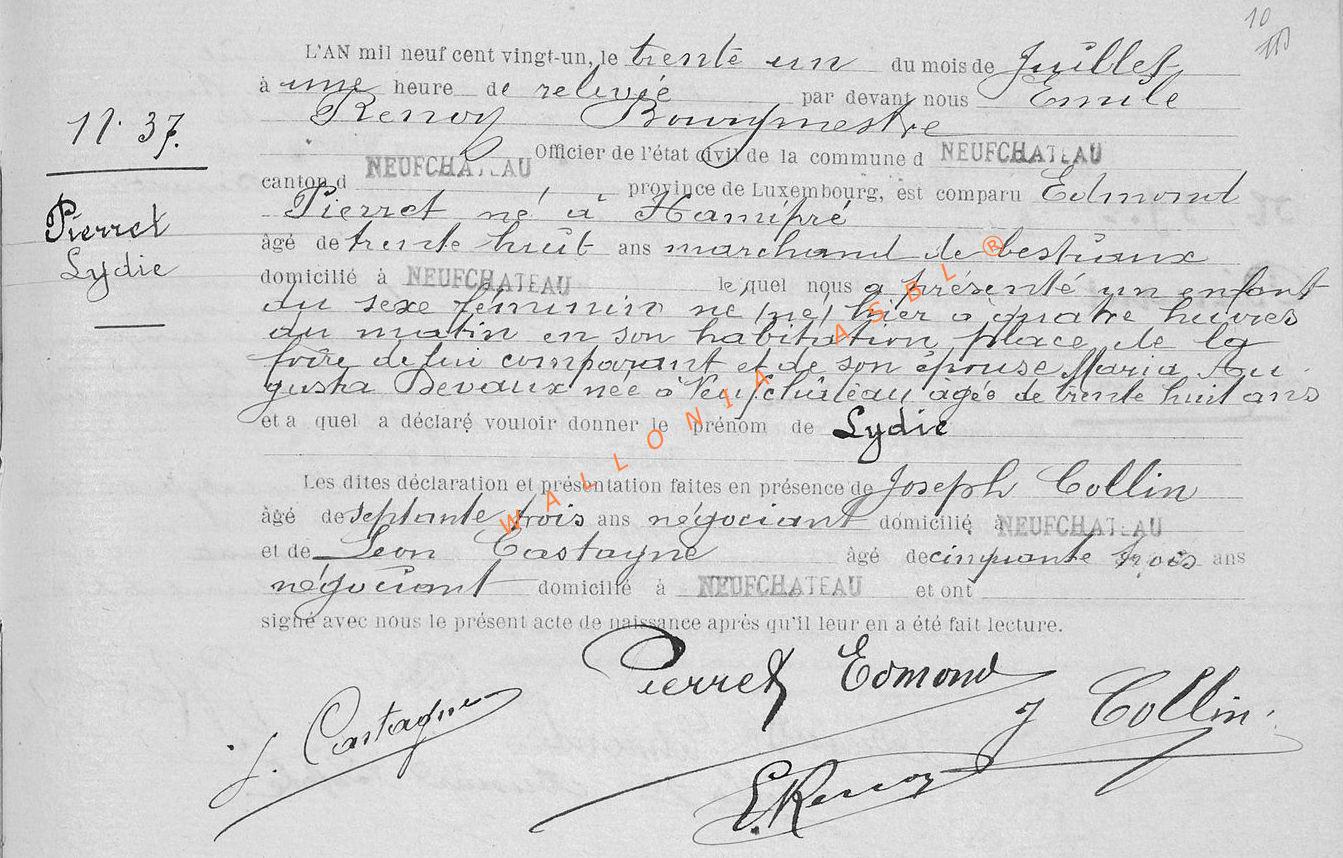 10
L'AN mil neuf cent vingt-un, le trente un du mois de Juillet
à une heure de relivée par devant nous Emile
Renoy Bourgmestre
Officier de l'état civil de la commune d NEUFCHATEAU
canton d NEUFCHATEAU province de Luxembourg, est comparu Edmond
Pierret né à Hamipré
âgé de trente huit ans marchand de bestiaux
domicilié à NEUFCHATEAU le quel nous a présenté un enfant
du sexe féminin né (né) hier à quatre heures
du matin en son habitation place de la
foire de lui comparant et de son épouse Maria Au
gusta Devaux née à Neufchâteau âgée de trente huit ans
et a quel a déclaré vouloir donner le prénom de Lydie
Les dites déclaration et présentation faites en présence de Joseph Collin
âgé de septante trois ans négociant domicilié à NEUFCHATEAU
et de Léon Castagne âgé de cinquante trois ans
négociant domicilié à NEUFCHATEAU et ont
signé avec nous le présent acte de naissance après qu'il leur en a été fait lecture.
N. 37.
Pierret
Lydie
WALLONIA ASBL ®
Pierret Edmond
J. Castagne
J Collin
E. Renoy